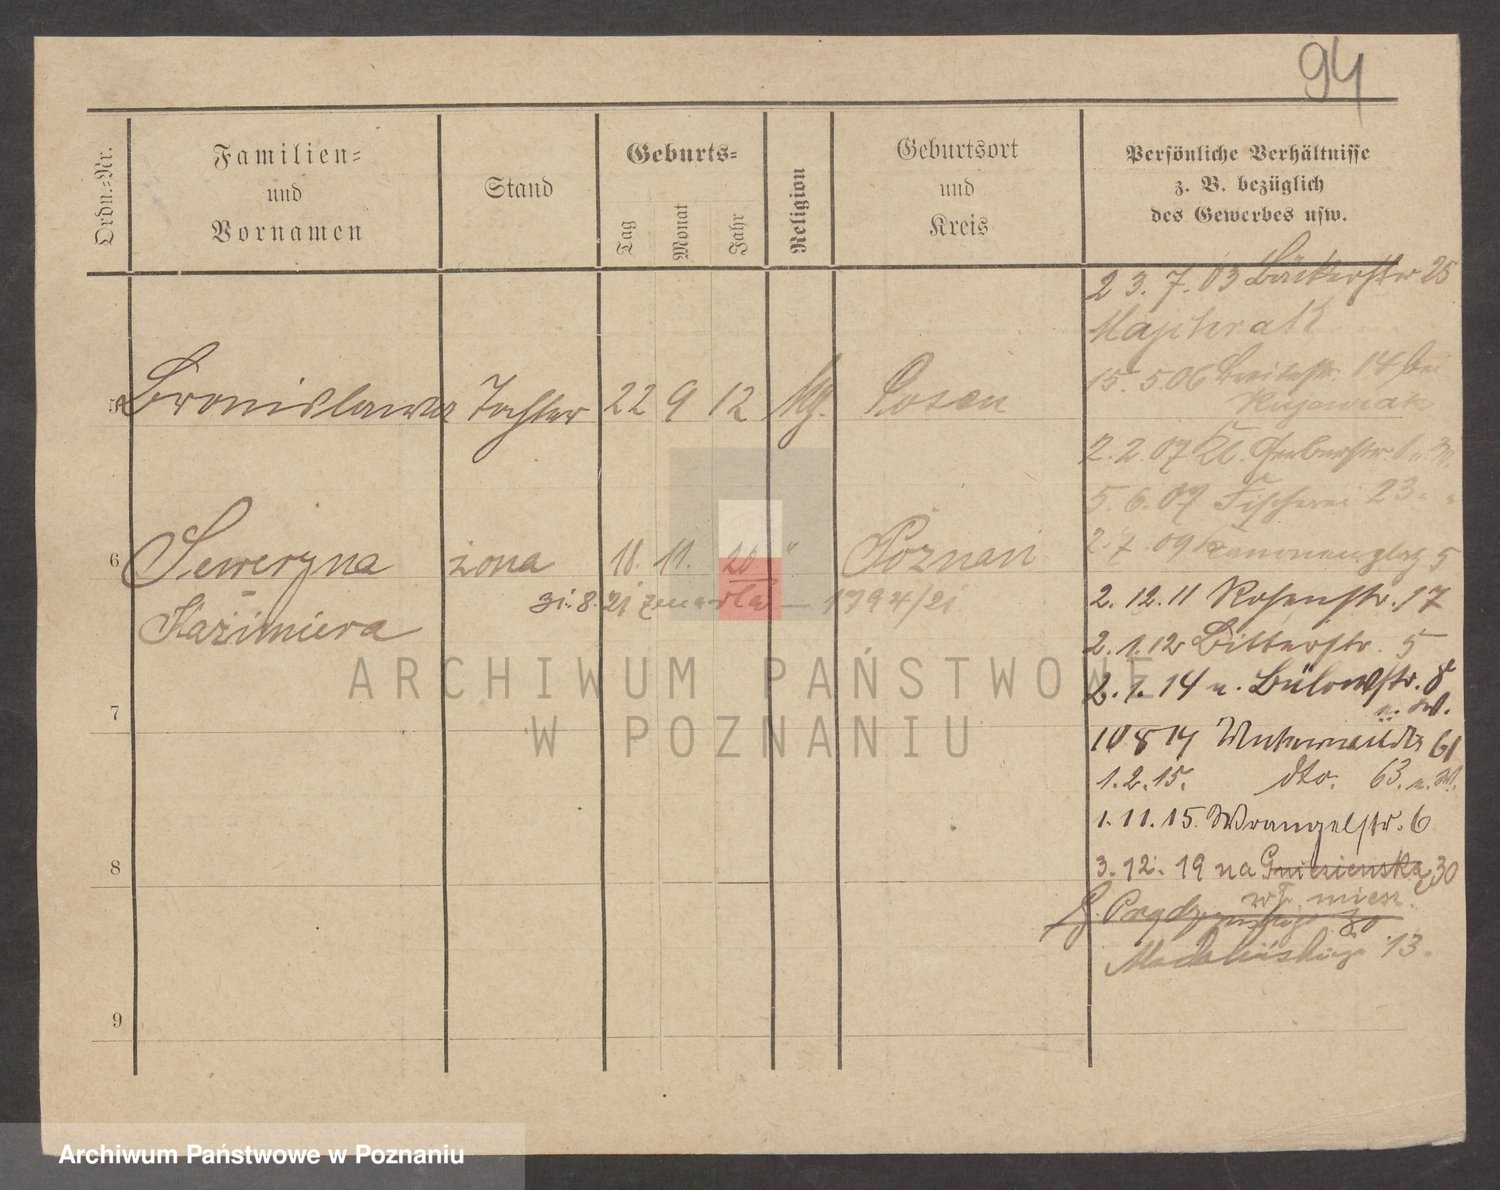 94
Ordn.-Nr.
Familien-
und
Vornamen
Stand
Geburts-
Tag
Monat
Jahr
Religion
Geburtsort
und
Kreis
Persönliche Verhältnisse
z. B. bezüglich
des Gewerbes usw.
23.7.03 Bäckerstr 25
15.5.06 Breitestr. 14 bei
Kujawiak
2.2.07 Kl. Gerberstr.
5.6.07 Fischerei 23
2.7.09 Kanonenplatz 5
2.12.11 Rosenstr. 17
2.1.12 Bitterstr. 5
2.1.14 n. Bülowstr. 8
n. W.
10 8 14 61
1.2.15. dto. 63. n. W.
1.11.15. Wrangelstr. 6
3.12.19 na Gnieźnienską 30
wł. miesz.
30
Madalińskiego 13.
5 Bronislawa Tochter 22 9 12 Posen
6 Seweryna żona 18. 11. 20 " Poznań
31.8.21 zmarła — 1794/21
Kazimiera
7
8
9
ARCHIWUM PAŃSTWOWE
W POZNANIU
Archiwum Państwowe w Poznaniu